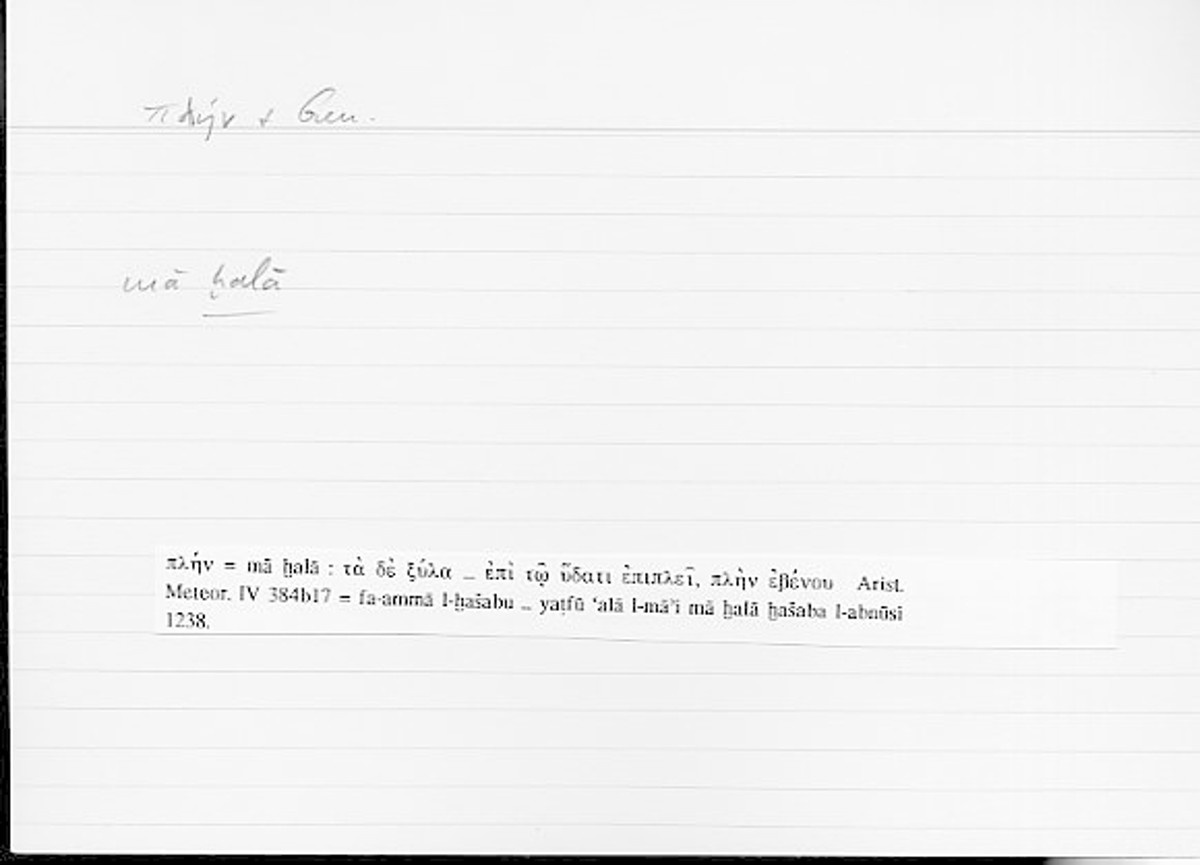 πλήν + Gen.
mā ḫalā
πλήν = mā ḫalā : τὰ δὲ ξύλα _ ἐπὶ τῷ ὕδατι ἐπιπλεῖ, πλὴν ἐβένου Arist.
Meteor. IV 384b17 = fa-ammā l-ḫašabu _ yaṭfū ʻalā l-māʼi mā ḫalā ḫašaba l-abnūsi
1238.